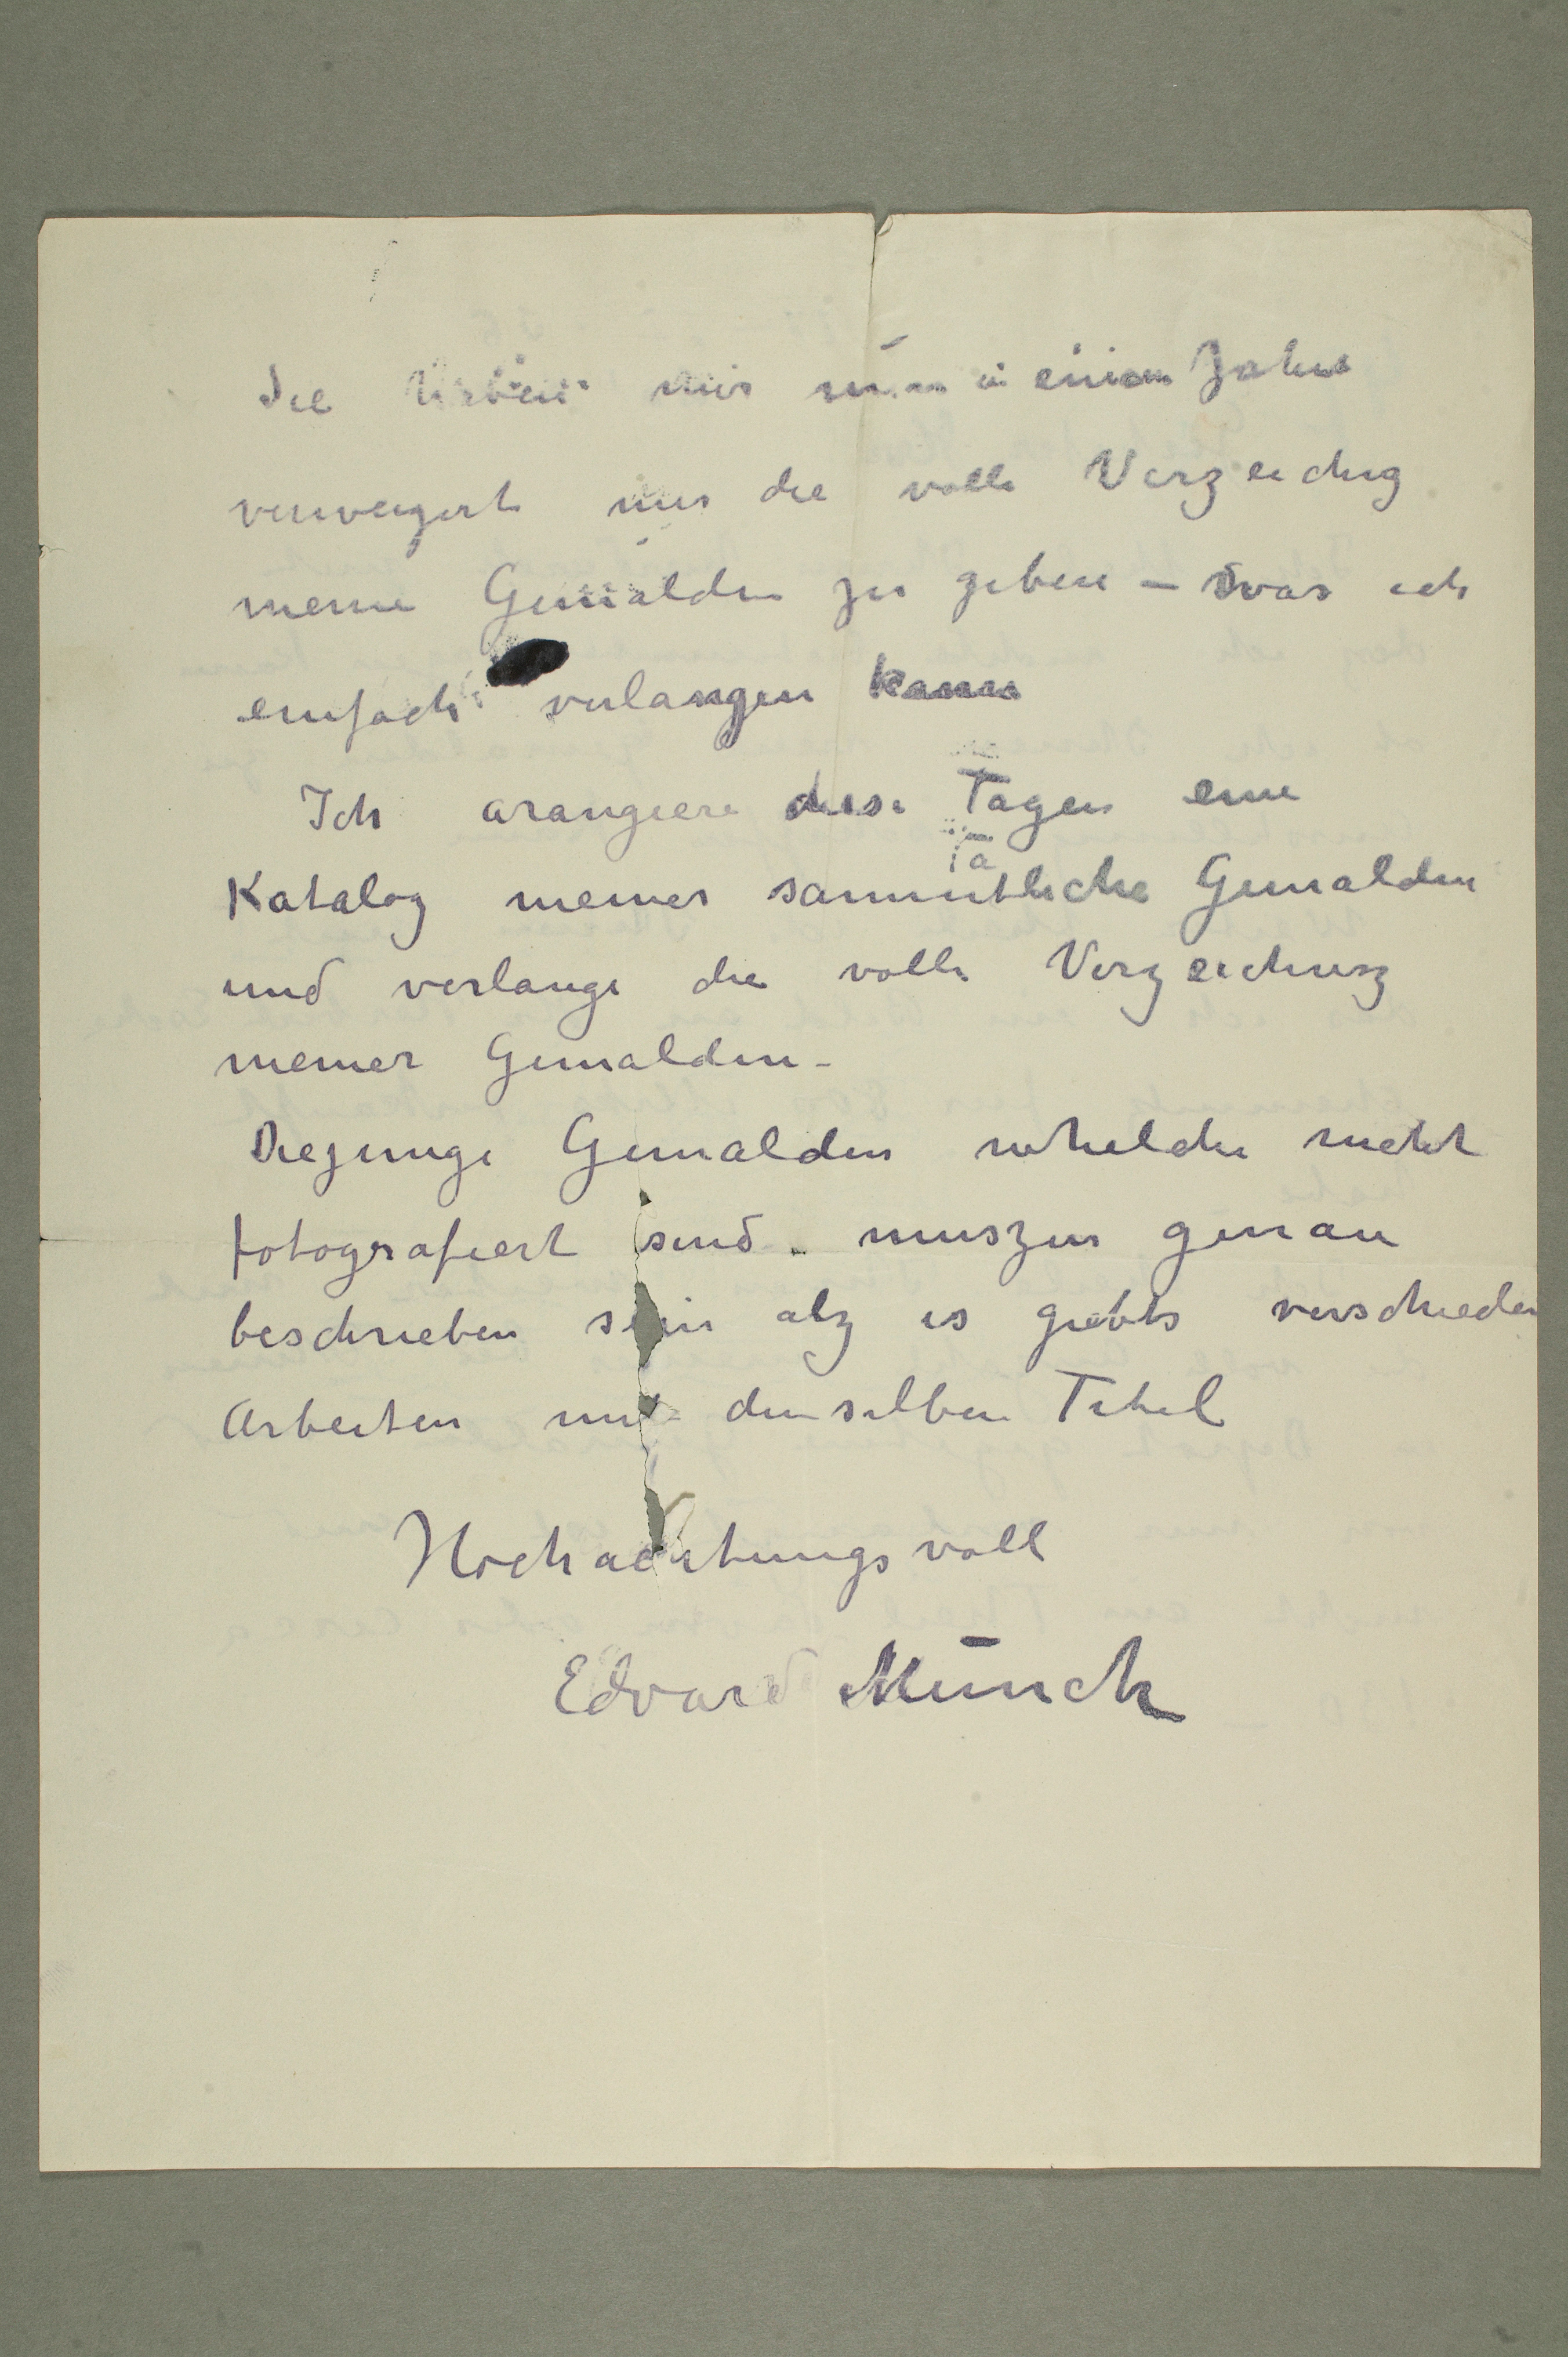 Sie haben mir nun in einem Jahre
verweigert mir die volle Verzeichng
meine Gemälden zu geben – was ich
einfach verlangen kann
Ich arangiere diese Tagen eine
Katalog meiner sammtliche Gemalden
und verlange die volle Verzeichnung
meiner Gemalden –
Diejenige Gemalden whelche nicht
fotografiert sind muszen genau
beschrieben sein alz es giebts verschieden
Arbeiten mit demselben Titel
Hochachtungsvoll
Edvard Munch